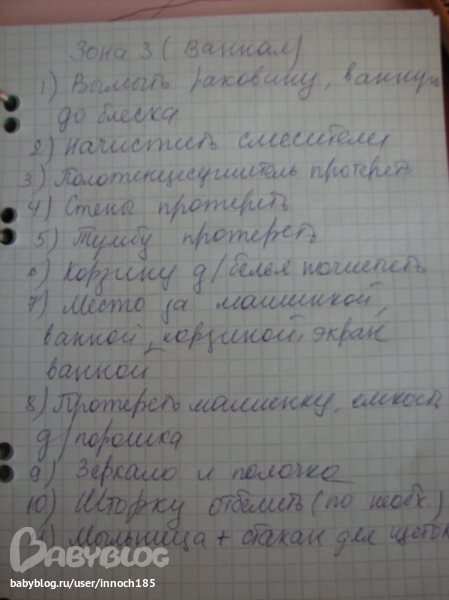 Зона 3 (Ванная)
1) Вымыть раковину, ванную
до блеска
2) Начистить смесители
3) Полотенцесушитель протереть
4) Стены протереть
5) Тумбу протереть
6) Корзину д/белья почистить
7) Место за машинкой,
ванной, корзиной, экран
ванной
8) Протереть машинку, емкость
д/порошка
9) Зеркало и полочка
10) Шторку отбелить (по необх.)
11) Мыльница + стакан для щеток
BABYBLOG
babyblog.ru/user/innoch185